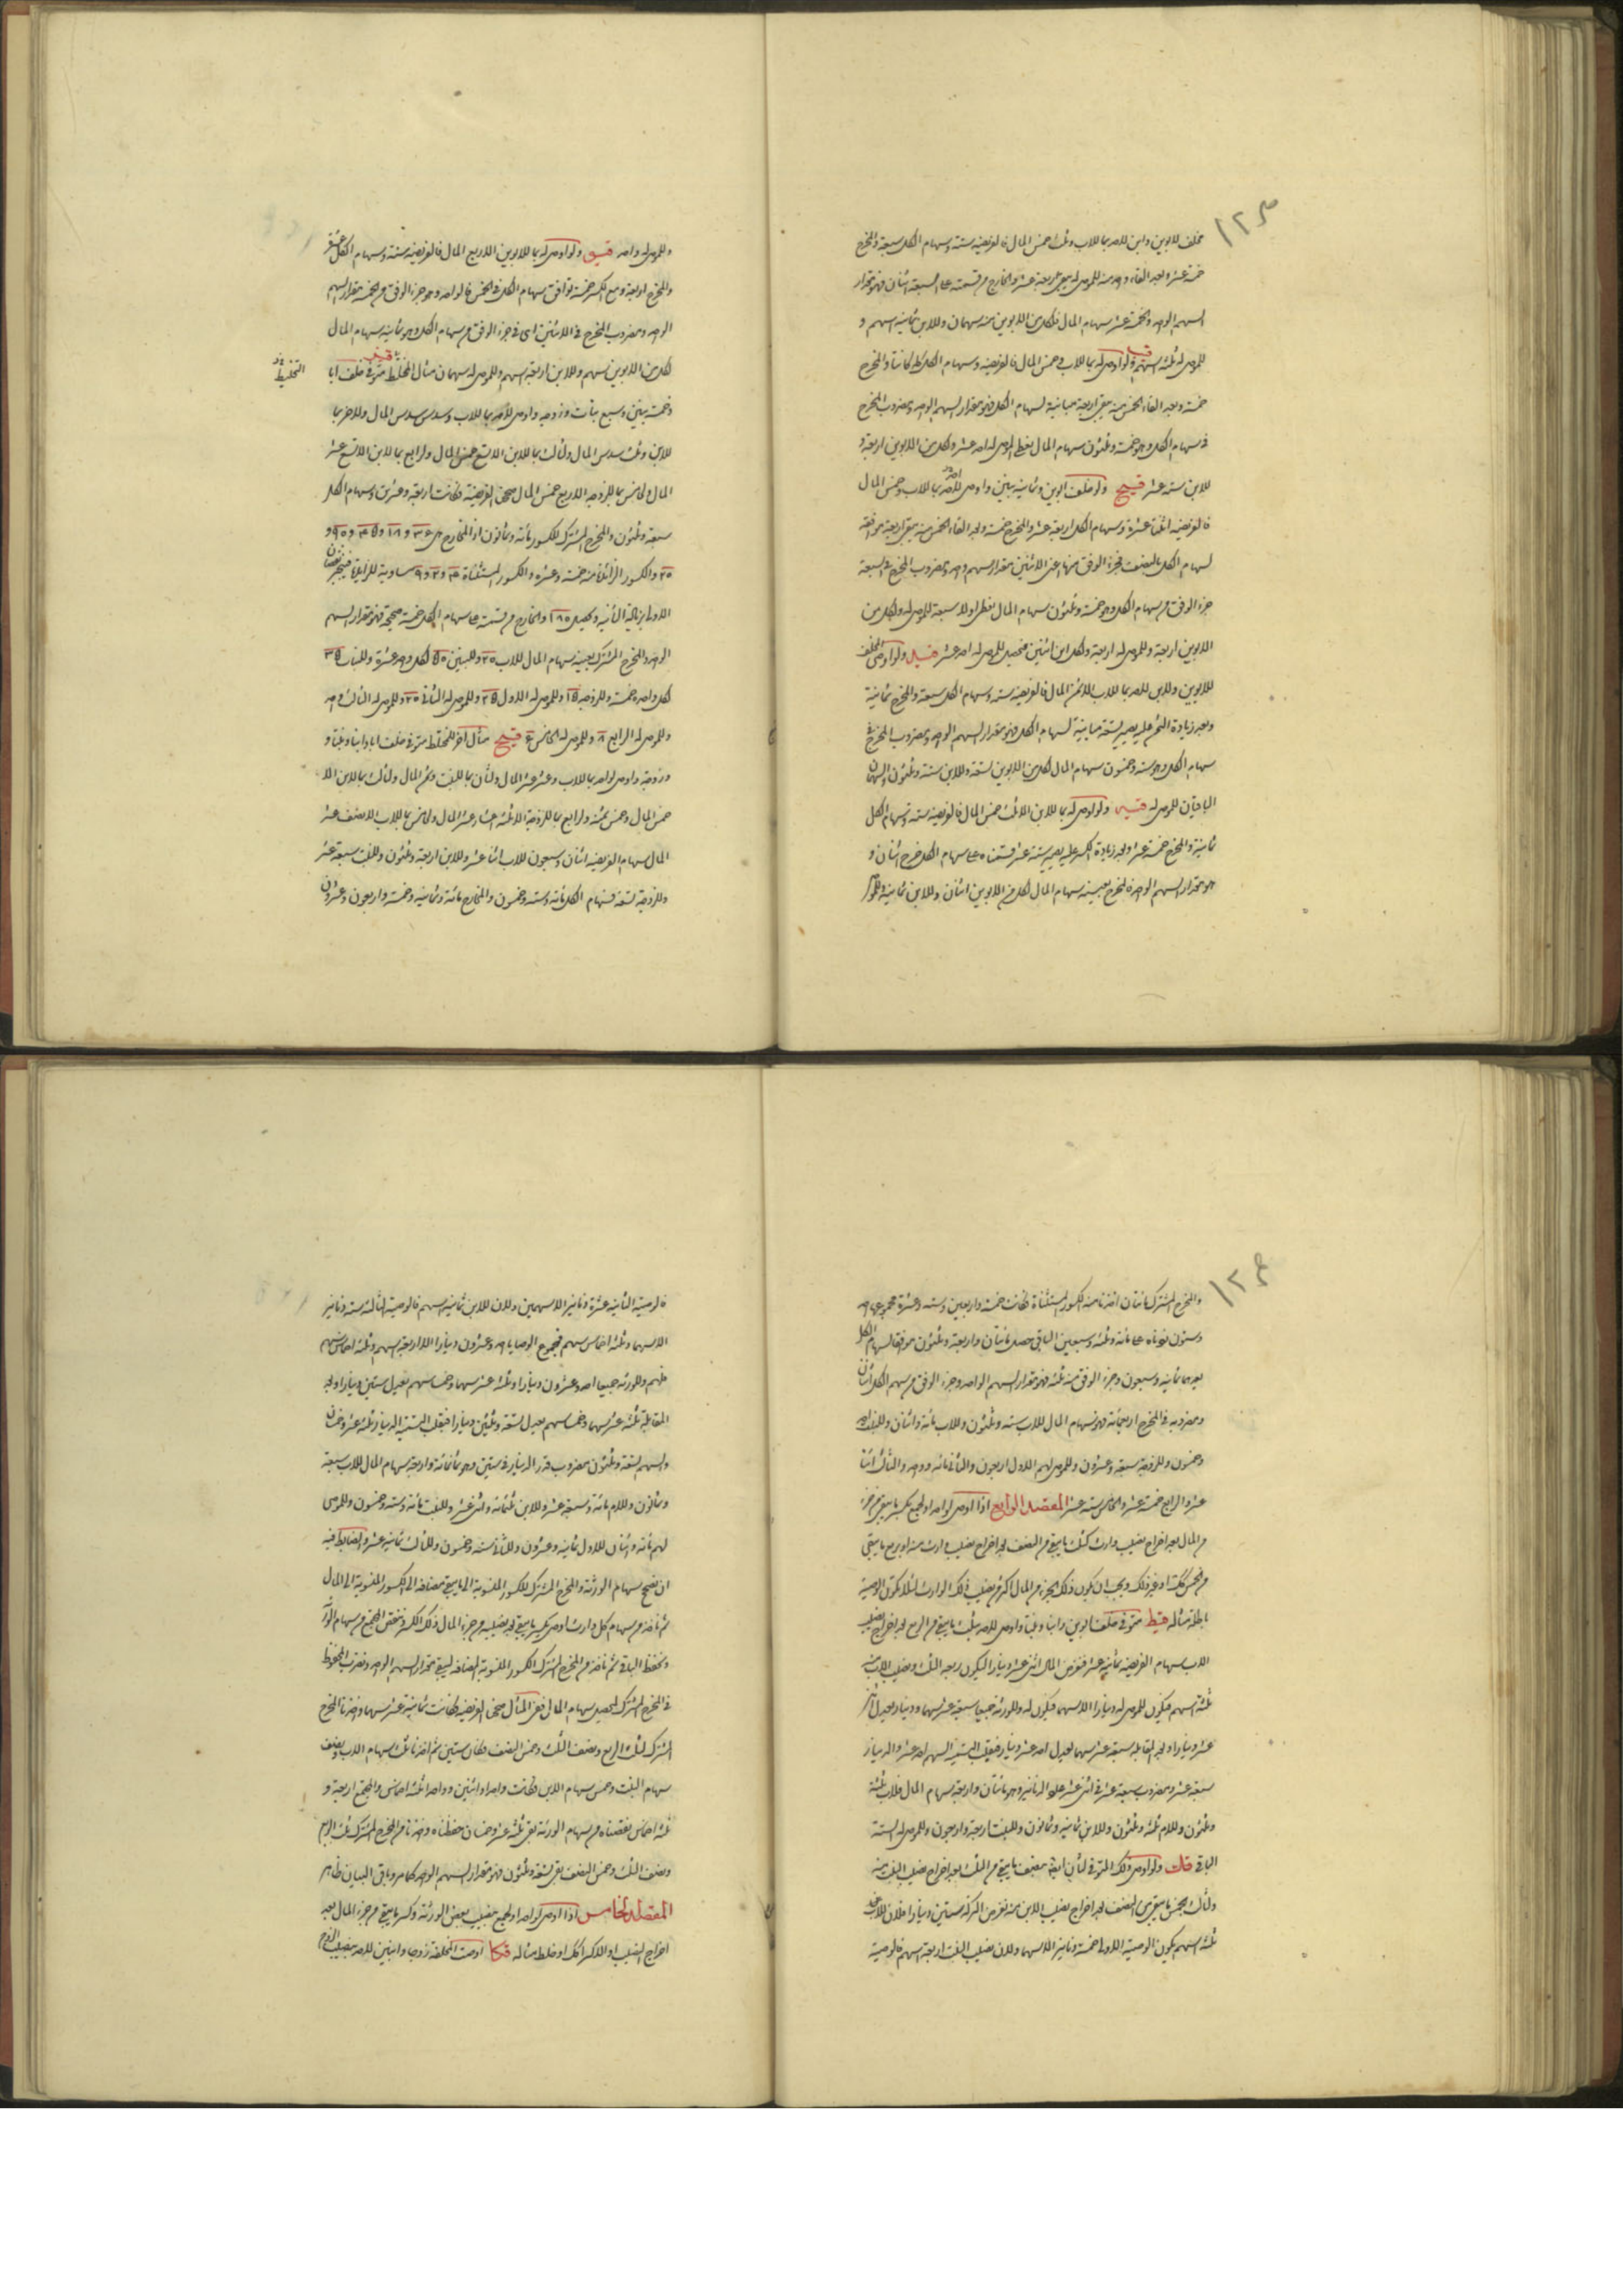 ١٢٣
مخلف للابوين وابن للاحد بما للاب وثلث خمس المال فالفريضة ستة وسهام الكل سبعة والمخرج
خمسة عشر وبعد القاء واحد منه للموصى له يبقى اربعة عشر والخارج من قسمته على السبعة اثنان فهو مقدار
السهم الواحد والخمسة عشر سهام المال فلكل من الابوين منه سهمان وللابن ثمانية اسهم و
للموصى له ثلثة اسهم ولو اوصى له بما للاب وخمس المال فالفريضة وسهام الكل كما كانتا والمخرج
خمسة وبعد القاء الخمس منه يبقى اربعة مباينة لسهام الكل فهو مقدار السهم الواحد ومضروب المخرج
في سهام الكل وهو خمسة وثلثون سهام المال يعطى الموصى له احد عشر ولكل من الابوين اربعة و
للابن ستة عشر قيح ولو خلف ابوين وثمانية بنين واوصى للاحد بما للاب وخمس المال
فالفريضة اثنا عشرة وسهام الكل اربعة عشر والمخرج خمسة وبعد القاء الخمس منه يبقى اربعة موافقة
لسهام الكل بالنصف فجزء الوفق منها اعنى الاثنين مقدار سهم واحد ومضروب المخرج في السبعة
جزء الوفق من سهام الكل وهو خمسة وثلثون سهام المال يعطى اولا سبعة للموصى له ولكل من
الابوين اربعة وللموصى له اربعة ولكل ابن اثنين فيحصل للموصى له احد عشر قيد ولو اوصى المخلف
للابوين وللابن للاحد بما للاب الا ثمن المال فالفريضة ستة وسهام الكل سبعة والمخرج ثمانية
وبعد زيادة الثمن عليه يصير تسعة مباينة لسهام الكل فهو مقدار السهم الواحد ومضروب المخرج في
سهام الكل وهو ستة وخمسون سهام المال لكل من الابوين تسعة وللابن ستة وثلثون والسهمان
الباقيان للموصى له قيه ولو اوصى له بما للابن الا ثلث خمس المال فالفريضة ستة وسهام الكل
ثمانية والمخرج خمسة عشر وبعد زيادة الكسر عليه يصير ستة عشر قسمناه على سهام الكل خرج اثنان و
هو مقدار السهم الواحد والمخرج بعينه سهام المال لكل من الابوين اثنان وللابن ثمانية وللموصى
وللموصى له واحد قيو ولو اوصى له بما للابوين الا ربع المال فالفريضة ستة وسهام الكل عشرة
والمخرج اربعة ومع الكسر خمسة توافق سهام الكل في الخمس فالواحد وهو جزء الوفق من الخمسة مقدار السهم
الواحد ومضروب المخرج في الاثنين اى في جزء الوفق من سهام الكل وهو ثمانية سهام المال
لكل من الابوين سهم وللابن اربعة اسهم وللموصى له سهمان مثال المختلط متوفى خلف ابا
التخليط
وخمسة بنين وسبع بنات وزوجة واوصى للاحد بما للاب وسدس سدس المال وللاخر بما
للابن وثلث سدس المال ولثالث بما للابن الا تسع خمس المال ولرابع بما للابن الا تسع عشر
المال ولخامس بما للزوجة الا ربع خمس المال صححنا الفريضة فكانت اربعة وعشرين وسهام الكل
سبعة وثلثون والمخرج المشترك للكسور مائة وثمانون اذ المخارج هى ٣٦ و ١٨ و ٤٥ و ٩٠ و
٢٠ والكسور الزائدة منه خمسة وعشره والكسور المستثناة ٤ و ٢ و ٩ مساوية للزائدة فينجبر نقصان
الاولى بزيادة الثانية ويحصل ١٨٥ والخارج من قسمته على سهام الكل خمسة صحيحة فهو مقدار السهم
الواحد والمخرج المشترك بعينه سهام المال للاب ٢٠ وللبنين ٥٠ لكل واحد عشرة وللبنات ٣٥
كل واحد خمسة وللزوجة ١٥ وللموصى له الاول ٢٥ وللموصى له الثانى ٢٠ وللموصى له الثالث واحد
وللموصى له الرابع ٨ وللموصى له الخامس ٦ قيح مثال اخر للمختلط متوفى خلف ابا وابنا وبنتا و
وزوجة واوصى لواحد بما للاب وعشر عشر المال ولثان بما للبنت وثمن المال ولثالث بما للابن الا
خمس المال وخمس ثمنه ولرابع بما للزوجة الا ثلثة اعشار عشر المال ولخامس بما للاب الا نصف عشر
المال سهام الفريضة اثنان وسبعون للاب اثنا عشر وللابن اربعة وثلثون وللبنت سبعة عشر
وللزوجة تسعة فسهام الكل مائة وستة وخمسون والمخارج مائة وثمانية وخمسة واربعون وعشرون
١٢٤
والمخرج المشترك مائتان اخذنا منه الكسور المستثناة فكانت خمسة واربعين وستة وعشرة مجموعها احد
وستون زدناه على مائة وثلثة وسبعين الباقى حصل مائتان واربعة وثلثون موافقا لسهام الكل
بعدهما ثمانية وسبعون وجزء الوفق منه ثلثة فهو مقدار السهم الواحد وجزء الوفق من سهم الكل اثنان
ومضروبه في المخرج اربعمائة فهو سهام المال للاب ستة وثلثون وللاب مائة واثنان وللبنت احد
وخمسون وللزوجة سبعة وعشرون وللموصى لهم الاول اربعون والثانى مائة وواحد والثالث اثنا
عشر والرابع خمسة عشر والخامس ستة عشر المقصد الرابع اذا اوصى لواحد او لجمع بكسر ما يبقى من جزء
من المال بعد اخراج نصيب وارث كثلث ما يبقى من النصف بعد اخراج نصيب وارث منه او بربع ما يبقى
من خمس كذلك او غير ذلك ويجب ان يكون ذلك الجزء من المال اكثر من نصيب ذلك الوارث لئلا تكون الوصية
باطلة مثاله قيط متوفى خلف ابوين وابنا وبنتا واوصى للاحد بثلث ما يبقى من الربع بعد اخراج نصيب
الاب سهام الفريضة ثمانية عشر فنفرض المال اثنى عشر دينارا ليكون ربعه الثلث ونصيب الاب منه
ثلثة اسهم فيكون للموصى له دينارا الا سهما فيكون له وللورثة جميعا سبعة عشر سهما ودينار يعدل اثنى
عشر دينارا وبعد المقابلة سبعة عشر سهما يعدل احد عشر دينار فيقلب التسمية السهم احد عشر والدينار
سبعة عشر ومضروب سبعة عشر في اثنى عشر عدد الدنانير وهو مائتان واربعة سهام المال فللاب ثلثة
وثلثون وللام ثلثة وثلثون وللابن ثمانية وثمانون وللبنت اربعة واربعون وللموصى له الستة
الباقى قك ولو اوصى ذلك المتوفى لثان ايضا بنصف ما يبقى من الثلث بعد اخراج نصيب البنت منه
ولثالث بخمس ما يبقى من النصف بعد اخراج نصيب الابن منه نفرض التركة ستين دينارا فلان للاب
ثلثة اسهم يكون الوصية الاولى خمسة دنانير الا سهما ولان نصيب البنت اربعة اسهم فالوصية
فالوصية الثانية عشرة دنانير الا سهمين ولان للابن ثمانية اسهم فالوصية الثالثة ستة دنانير
الا سهما وثلثة اخماس سهم فمجموع الوصايا احد وعشرون دينارا الا اربعة اسهم وثلثة اخماس سهم
فلهم وللورثة جميعا احد وعشرون دينارا وثلثة عشر سهما وخمسا سهم يعدل ستين دينارا وبعد
المقابلة ثلثة عشر سهما وخمسا سهم يعدل تسعة وثلثين دينارا فيقلب التسمية الدينار ثلثة عشر وخمسان
والسهم تسعة وثلثون مضروب قدر الدينار في ستين وهو ثمانمائة واربعة سهام المال للاب سبعة
وثمانون وللام مائة وسبعة عشر وللابن ثلثمائة واثنى عشر وللبنت مائة وستة وخمسون وللموصى
لهم مائة واثنان للاول ثمانية وعشرون وللثانى ستة وخمسون وللثالث ثمانية عشر والضابط فيه
ان نصحح سهام الورثة والمخرج المشترك للكسور المنسوبة الى ما يبقى مضافة الى الكسور المنسوبة الى المال
ثم ناخذ من سهام كل وارث اوصى بكسر ما يبقى بعد نصيبه من جزء المال ذلك الكسر وننقص المجتمع من سهام الورثة
ونحفظ الباقى ثم ناخذ من المخرج المشترك الكسور المنسوبة المضافة ليبقى مقدار السهم الواحد ونضرب المحفوظ
في المخرج المشترك ليحصل سهام المال ففى المثال صححنا الفريضة فكانت ثمانية عشر سهما واخذنا المخرج
المشترك لثلث الربع ونصف الثلث وخمس النصف فكان ستين ثم اخذنا ثلث سهام الاب ونصف
سهام البنت وخمس سهام الابن فكانت واحدا واثنين وواحدا وثلثة اخماس والمجتمع اربعة و
ثلثة اخماس نقصناه من سهام الورثة بقى ثلثة عشر وخمسان حفظناه واخذنا من المخرج المشترك ثلث الربع
ونصف الثلث وخمس النصف بقى تسعة وثلثون فهو مقدار السهم الواحد كما مر وباقى البيان ظاهر
المقصد الخامس اذا اوصى لواحد او لجمع بنصيب بعض الورثة وكسر ما يبقى من جزء المال بعد
اخراج النصيب او الا كسرا كذلك او خلط مثاله قكا اوصت المخلفة زوجا وابنين للاحد بنصيب الزوج